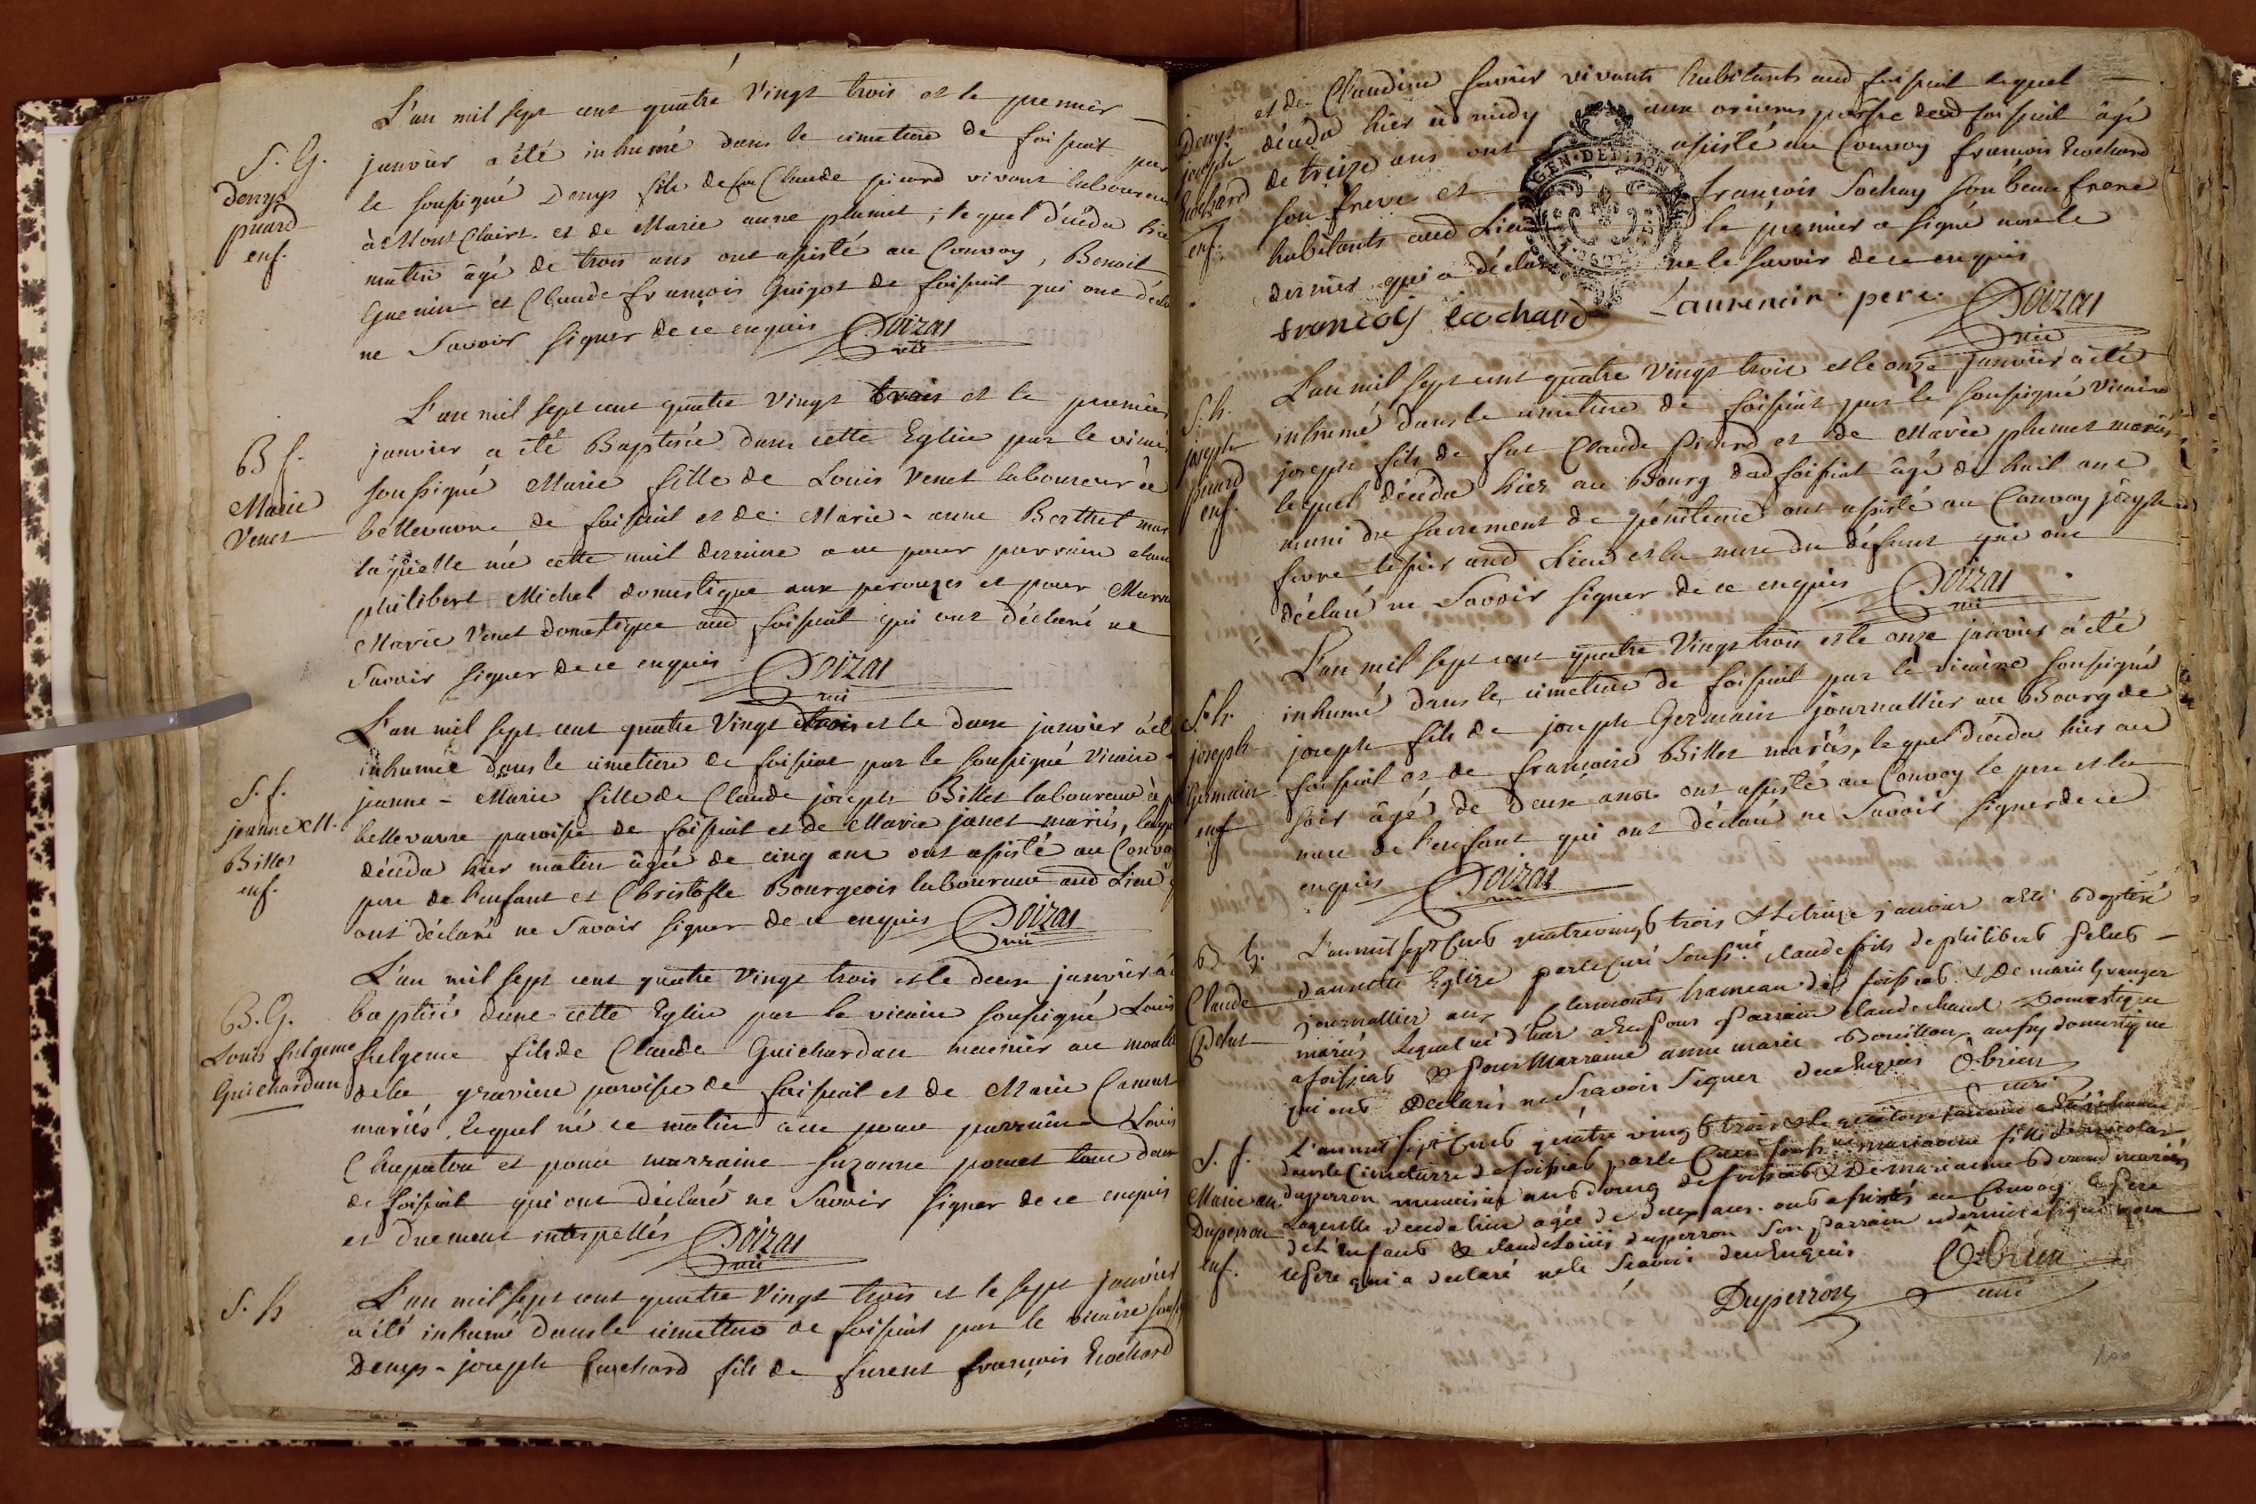 L'an mil sept cent quatre vingt trois et le premier
S. G.
Denys
picard
enf.
janvier a été inhumé dans le cimetiere de foissiat par
le soussigné Denys fils de feu Claude picard vivant laboureur
à Mont Clairt et de Marie anne plumet ; lequel décéda hier
matin âgé de trois ans ont assisté au Convoy, Benoit
Guenin et Claude françois Guigot de foissiat qui ont déclaré
ne Savoir signer de ce enquis Poizat
vic
L'an mil sept cent quatre vingt trois et le premier
B f.
Marie
Venet
janvier a été Baptisée dans cette Eglise par le vicaire
soussigné Marie fille de Louis Venet laboureur à
bellevavre de foissiat et de Marie-anne Berthet mariés
laquelle née cette nuit derniere a eu pour parrain
philibert Michel domestique aux perouzes et pour Marraine
Marie Venet domestique aud foissiat qui ont déclaré ne
Savoir signer de ce enquis Poizat
vic
L'an mil sept cent quatre vingt trois et le deux janvier a été
S. f.
jeanne M.
Billet
enf.
inhumée dans le cimetiere de foissiat par le soussigné Vicaire
jeanne-Marie fille de Claude joseph Billet laboureur à
bellevavre paroisse de foissiat et de Marie janet mariés, laquelle
décéda hier matin âgée de cinq ans ont assisté au Convoy
pere de l'enfant et Christofle Bourgeois laboureur aud Lieu
ont déclaré ne Savoir signer de ce enquis Poizat
vic
L'an mil sept cent quatre vingt trois et le deux janvier a été
B. G.
Louis fulgence
Guichardan
baptisé dans cette Eglise par le vicaire soussigné Louis
fulgence fils de Claude Guichardan meunier au moulin
de la graviere paroisse de foissiat et de Marie Camus
mariés, lequel né ce matin a eu pour parrain Louis
Chapatou et pour marraine Suzanne pomet tous deux
de foissiat qui ont déclarés ne Savoir signer de ce enquis
et duement interpellés Poizat
vic
S. h
L'an mil sept cent quatre vingt trois et le sept janvier
a été inhumé dans le cimetiere de foissiat par le vicaire
Denys-joseph Ecochard fils de furent françois Ecochard
Denys
joseph
Ecochard
enf.
et de Claudine favier vivants habitants aud foissiat lequel
décéda hier à midy aux orieres parsse dud foissiat âgé
de treize ans ont assisté au Convoy francois Ecochard
GEN. DE DIJON
son frere et françois Sochay son beau frere
habitants aud Lieu le premier a signé non le
dernier qui a déclaré ne le savoir de ce enquis
francois Ecochard Laurencin pere Poizat
vic
L'an mil sept cent quatre vingt trois et le onze janvier a été
S. h.
joseph
picard
enf.
inhumé dans le cimetiere de foissiat par le soussigné vicaire
joseph fils de feu Claude Picard et de Marie plumet mariés
lequel décéda hier au Bourg dud foissiat âgé de huit ans
muni du sacrement de pénitence ont assisté au Convoy joseph
aud Lieu et la mere du défunt qui ont
déclaré ne Savoir signer de ce enquis Poizat
vic
L'an mil sept cent quatre vingt trois et le onze janvier a été
S. h.
joseph
Germain
enf
inhumé dans le cimetiere de foissiat par le vicaire soussigné
joseph fils de joseph Germain journallier au Bourg de
foissiat et de françoise Billet mariés, lequel décéda hier au
soir âgé de deux ans ont assisté au Convoy le pere et la
mere de l'enfant qui ont déclaré ne Savoir signer de ce
enquis Poizat
vic
B. G.
Claude
Pelus
L'an mil sept cent quatrevingt trois et le treize janvier a été Baptisé
dans cette Eglise par le Curé souss.né claude fils de philibert Pelus
journallier aux Clermonts hameau de foissiat & de marie Granger
mariés lequel né d'hier a eu pour Parrain claude chanel domestique
a foissiat & pour Marraine anne marie Bouilloux aussy domestique
qui ont déclarés ne Scavoir signer de ce Enquis Obrien
curé
S. f.
Marie an.
Duperron
enf.
L'an mil sept cent quatre vingt trois & le quatorze janvier a été inhumée
dans le Cimetiere de foissiat par le Curé souss.né marianne fille de nicolas
duperron menuisier au bourg de foissiat & de marianne Bernard mariés
Laquelle décéda hier agée de deux ans. ont assistés au Convoy le Pere
de l'Enfant & claude Louis duperron son Parrain ce dernier a signé non
le Pere qui a declaré ne le Scavoir de ce Enquis
Duperron Obrien
curé
100